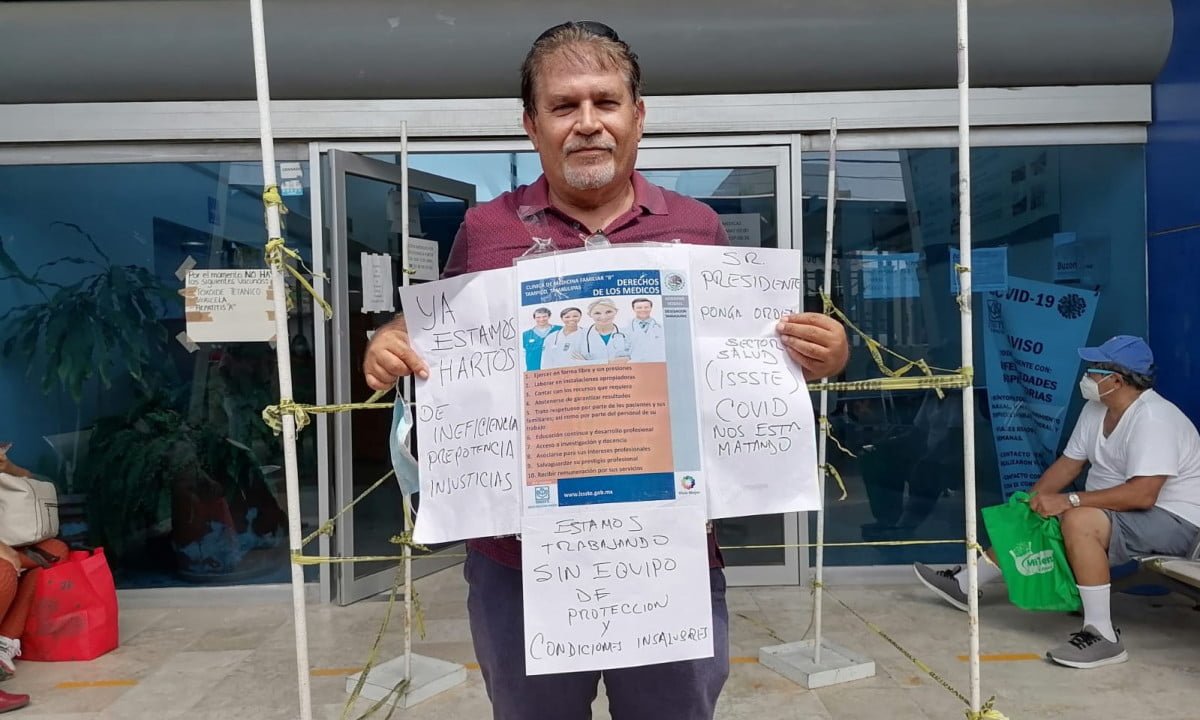 Por el momento NO HAY
los siguientes vacunas
TOXOIDE TETANICO
VARICELA
HEPATITIS "A"
YA
ESTAMOS
HARTOS
DE
INEFICIENCIA
PREPOTENCIA
INJUSTICIAS
CLINICA DE MEDICINA FAMILIAR "B"
TAMPICO, TAMAULIPAS
DERECHOS
DE LOS MEDICOS
1. Ejercer en forma libre y sin presiones
2. Laborar en instalaciones apropiadas
3. Contar con los recursos que requiere
4. Abstenerse de garantizar resultados
5. Trato respetuoso por parte de los pacientes y sus
familiares; así como por parte del personal de su
trabajo
6. Educación continua y desarrollo profesional
7. Acceso a investigación y docencia
8. Asociarse para sus intereses profesionales
9. Salvaguardar su prestigio profesional
10. Recibir remuneración por sus servicios
www.issste.gob.mx
SR.
PRESIDENTE
PONGA ORDEN
SECTOR
SALUD
(ISSSTE)
COVID
NOS ESTA
MATANDO
ESTAMOS
TRABAJANDO
SIN EQUIPO
DE
PROTECCION
Y
CONDICIONES INSALUBRES
Buzon
COVID-19
AVISO